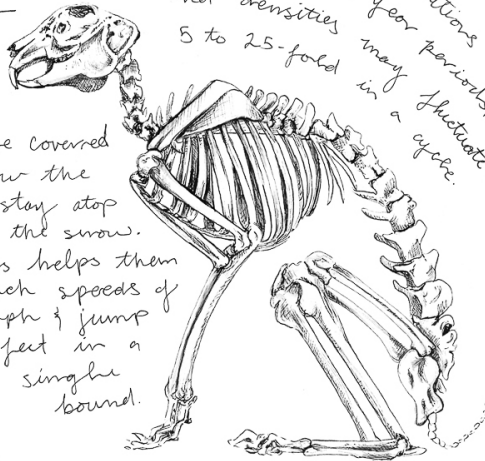 densities
5 to 25-fold
year periods,
may fluctuate
in a
cycle.
e covered
the
stay atop
the snow.
s helps them
ch speeds of
ph & jump
feet in a
single
bound.